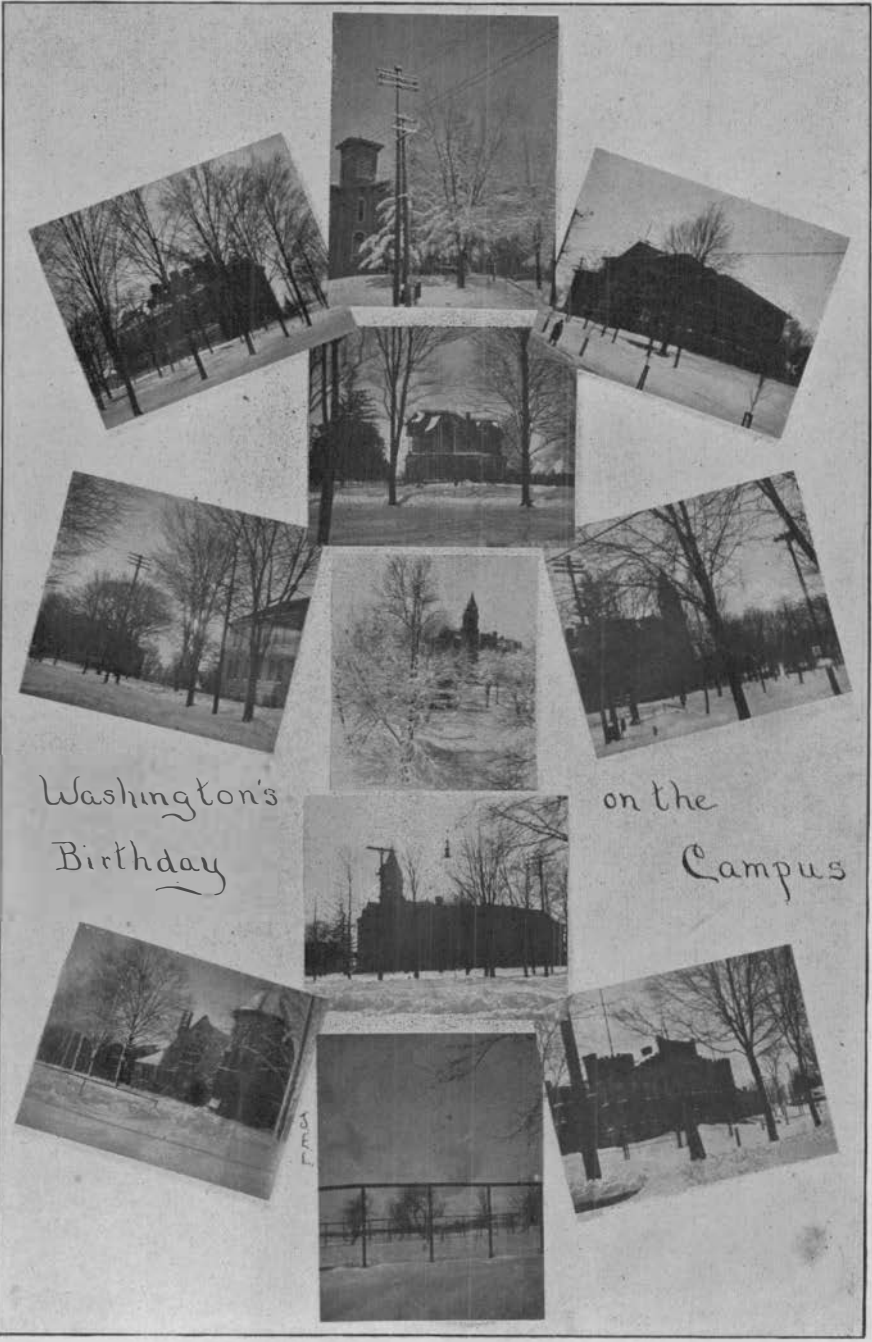 Washington's
Birthday
on the
Campus